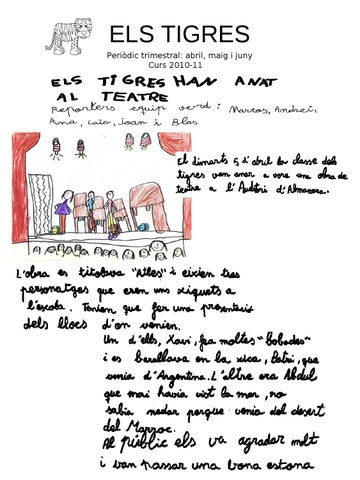 ELS TIGRES
Periòdic trimestral: abril, maig i juny
Curs 2010-11
ELS TIGRES HAN ANAT
AL TEATRE
Reporters equip verd: Marcos, Andreii,
Ana, Laia, Joan i Blas
El dimarts 5 d'abril la classe dels
tigres vam anar a vore una obra de
teatre a l'Auditori d'Almanara.
L'obra es titolava "Atles" i eixien tres
personatges que eren uns xiquets a
l'escola. Tenien que fer una presentació
dels llocs d'on venien.
Un d'ells, Xavi, fea moltes "bobades"
i es barallava en la xica, Patri, que
venia d'Argentina. L'altre era Abdul
que mai havia vist la mar, no
sabia nedar perque venia del desert
del Marroc.
Al públic els va agradar molt
i van passar una bona estona